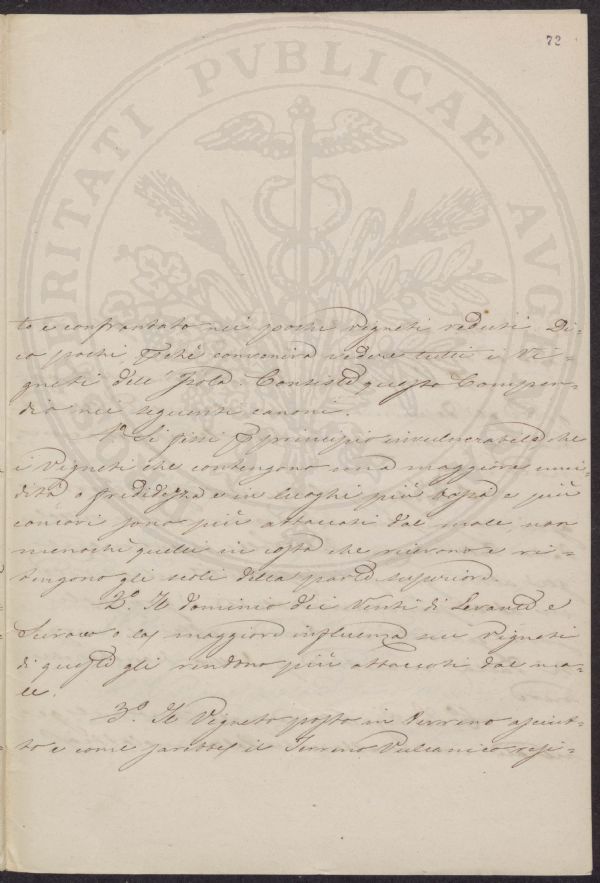 72
PROSPERITATI PVBLICAE AVGENDAE
to e confrontato nei pochi vigneti veduti. Di=
co pochi, perchè converria vedere tutti i Vi=
gneti dell' Isola. Consiste questo Compen=
dio nei seguenti canoni.
1.o Si fissi per principio invulnerabile che
i Vigneti che contengono una maggiore umi=
dità o frididezza e in luoghi più bassi e più
concavi sono più attaccati dal male, non
menochè quelli in costa che ricevono e ri=
tengono gli scoli della parte superiore.
2.o Il dominio dei Venti di Levante e
Scirocco o la maggiore influenza nei Vigneti
di questo gli rendono più attaccati dal ma=
le.
3.o Il Vigneto posto in terreno asciut=
to e come sarebbe il Terreno Vulcanico resi=